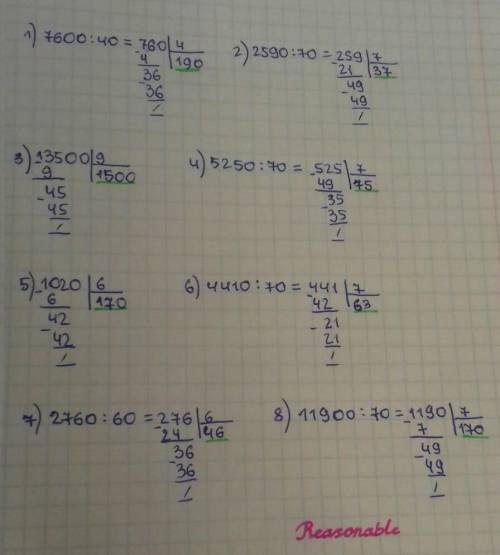 1) 7600:40 = 760 | 4
- 4 | 190
36
- 36
/
2) 2590:70 = 259 | 7
- 21 | 37
49
- 49
/
3) 13500 | 9
- 9 | 1500
45
- 45
/
4) 5250:70 = 525 | 7
- 49 | 75
35
- 35
/
5) 1020 | 6
- 6 | 170
42
- 42
/
6) 4410:70 = 441 | 7
- 42 | 63
21
- 21
/
7) 2760:60 = 276 | 6
- 24 | 46
36
- 36
/
8) 11900:70 = 1190 | 7
- 7 | 170
49
- 49
/
Reasonable